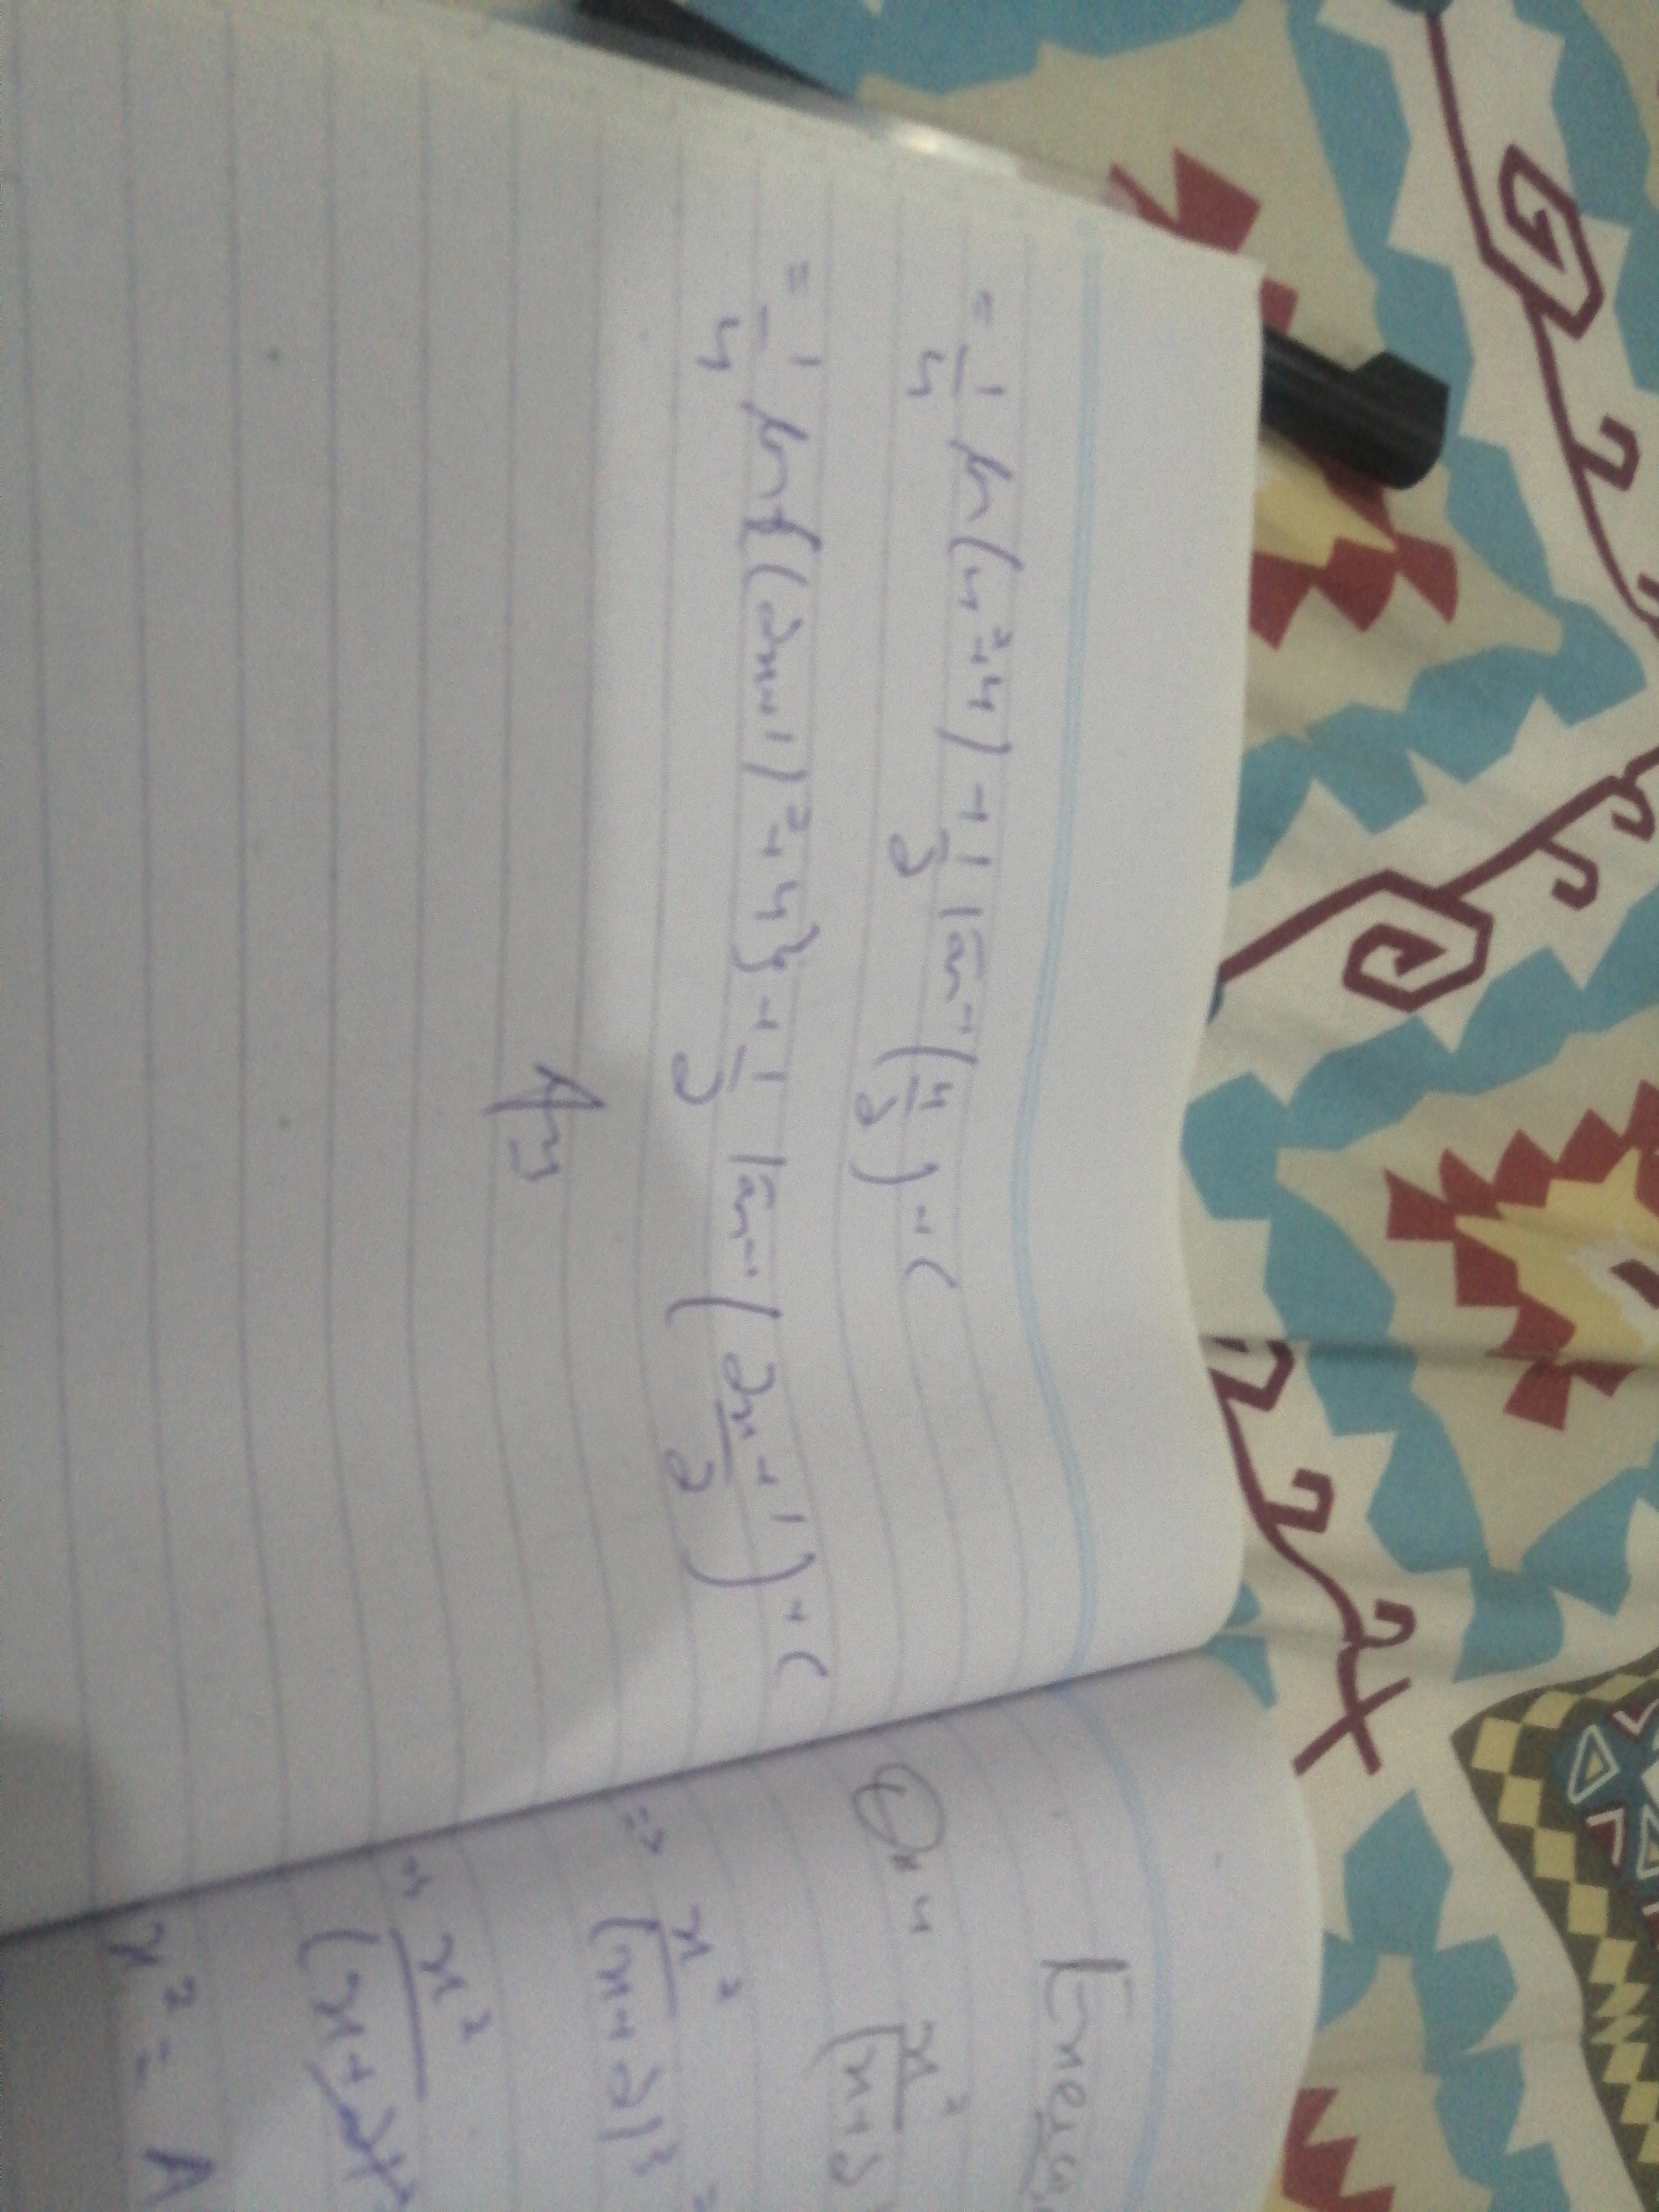 = 1/4 ln(u²+4) + 1/2 tan⁻¹(u/2) + C
= 1/4 ln{(2x+1)²+4} + 1/2 tan⁻¹(2x+1/2) + C
Ans
Q#4 x²/(x+2
=> x²/(x+2)³ =
x²/(x+2)³
x² = A